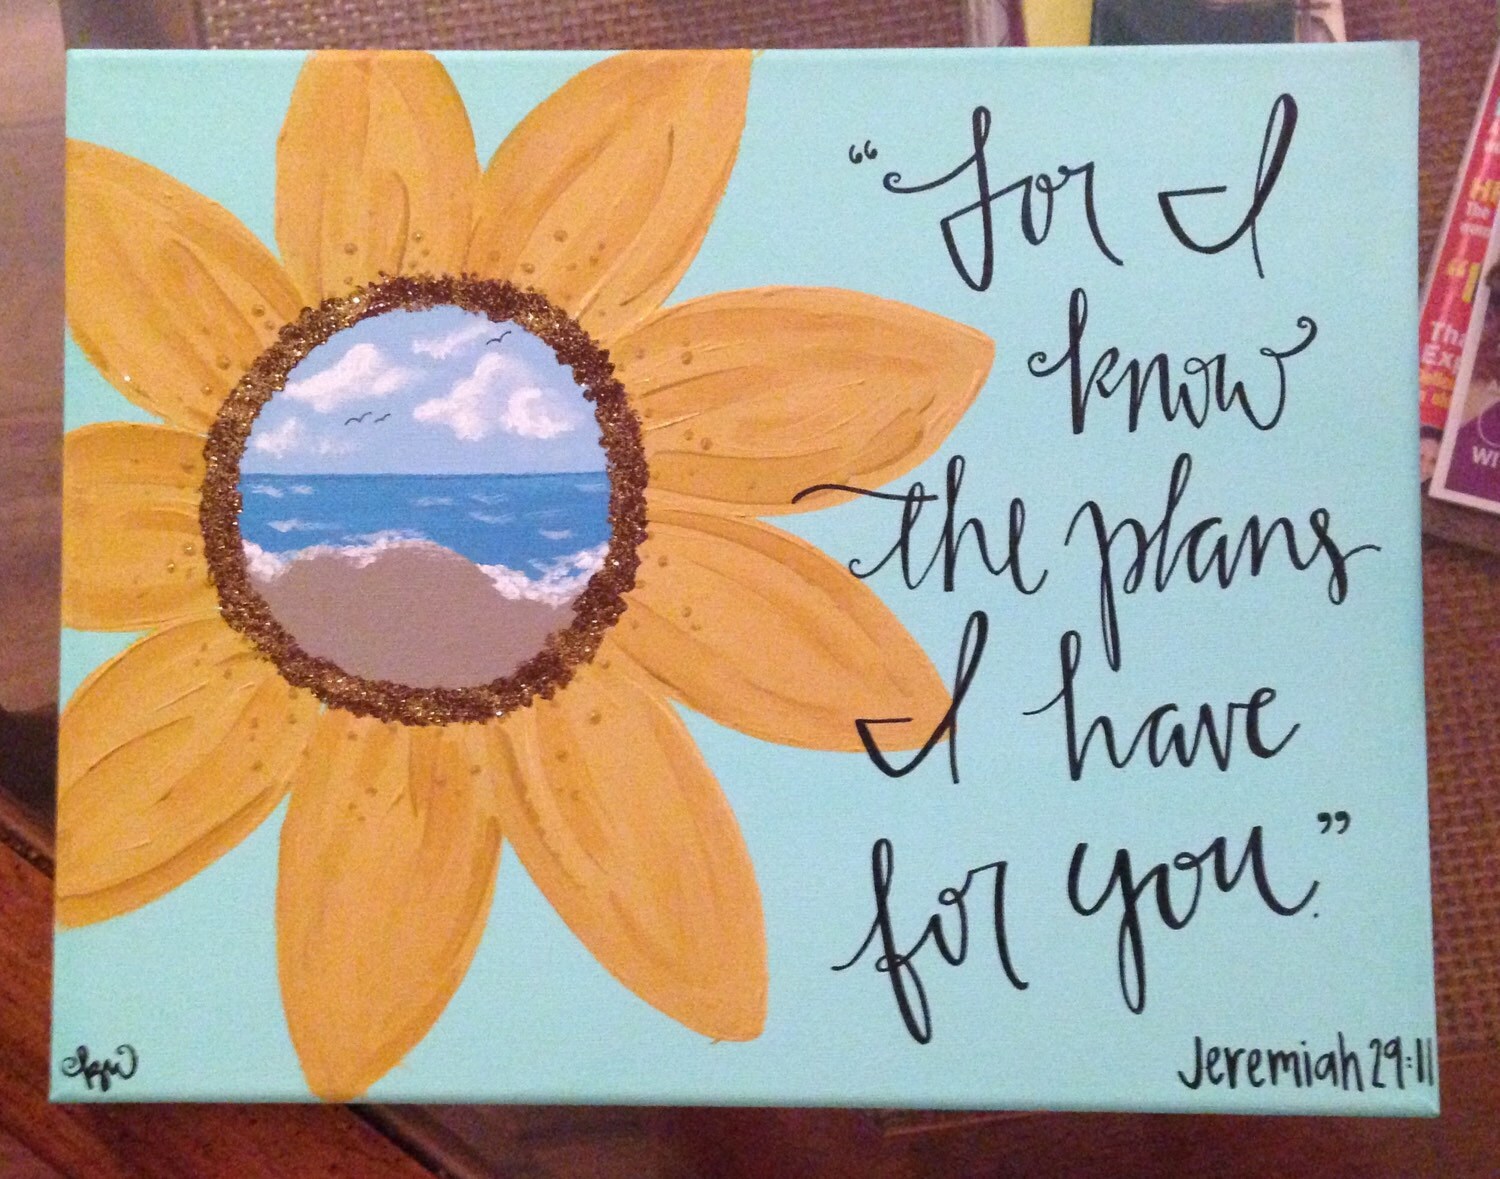 “for I
know
the plans
I have
for you.”
Jeremiah 29:11
krw